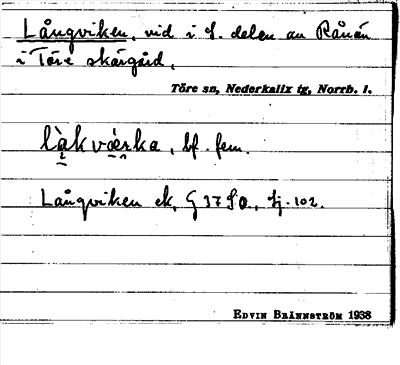 Långviken, vid i S. delen av Rånön
i Töre skärgård.
Töre sn, Nederkalix tg, Norrb. l.
bf. fem.
Långviken ek. G 37 SO., fj. 102.
EDVIN BRÄNNSTRÖM 1938